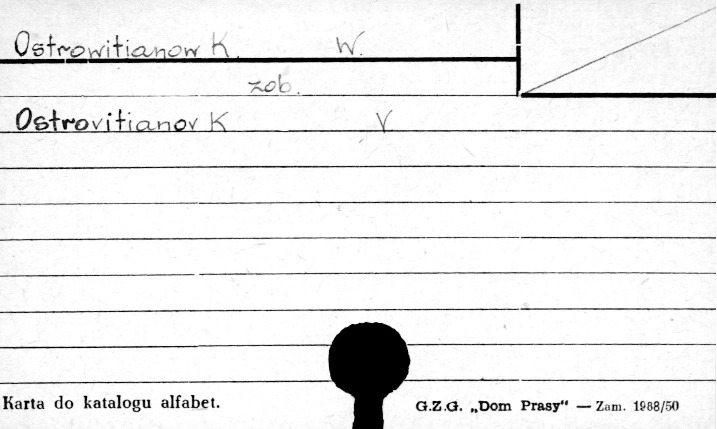 Ostrowitianow K. W.
zob.
Ostrovitianov K V
Karta do katalogu alfabet. G.Z.G. „Dom Prasy“ — Zam. 1988/50